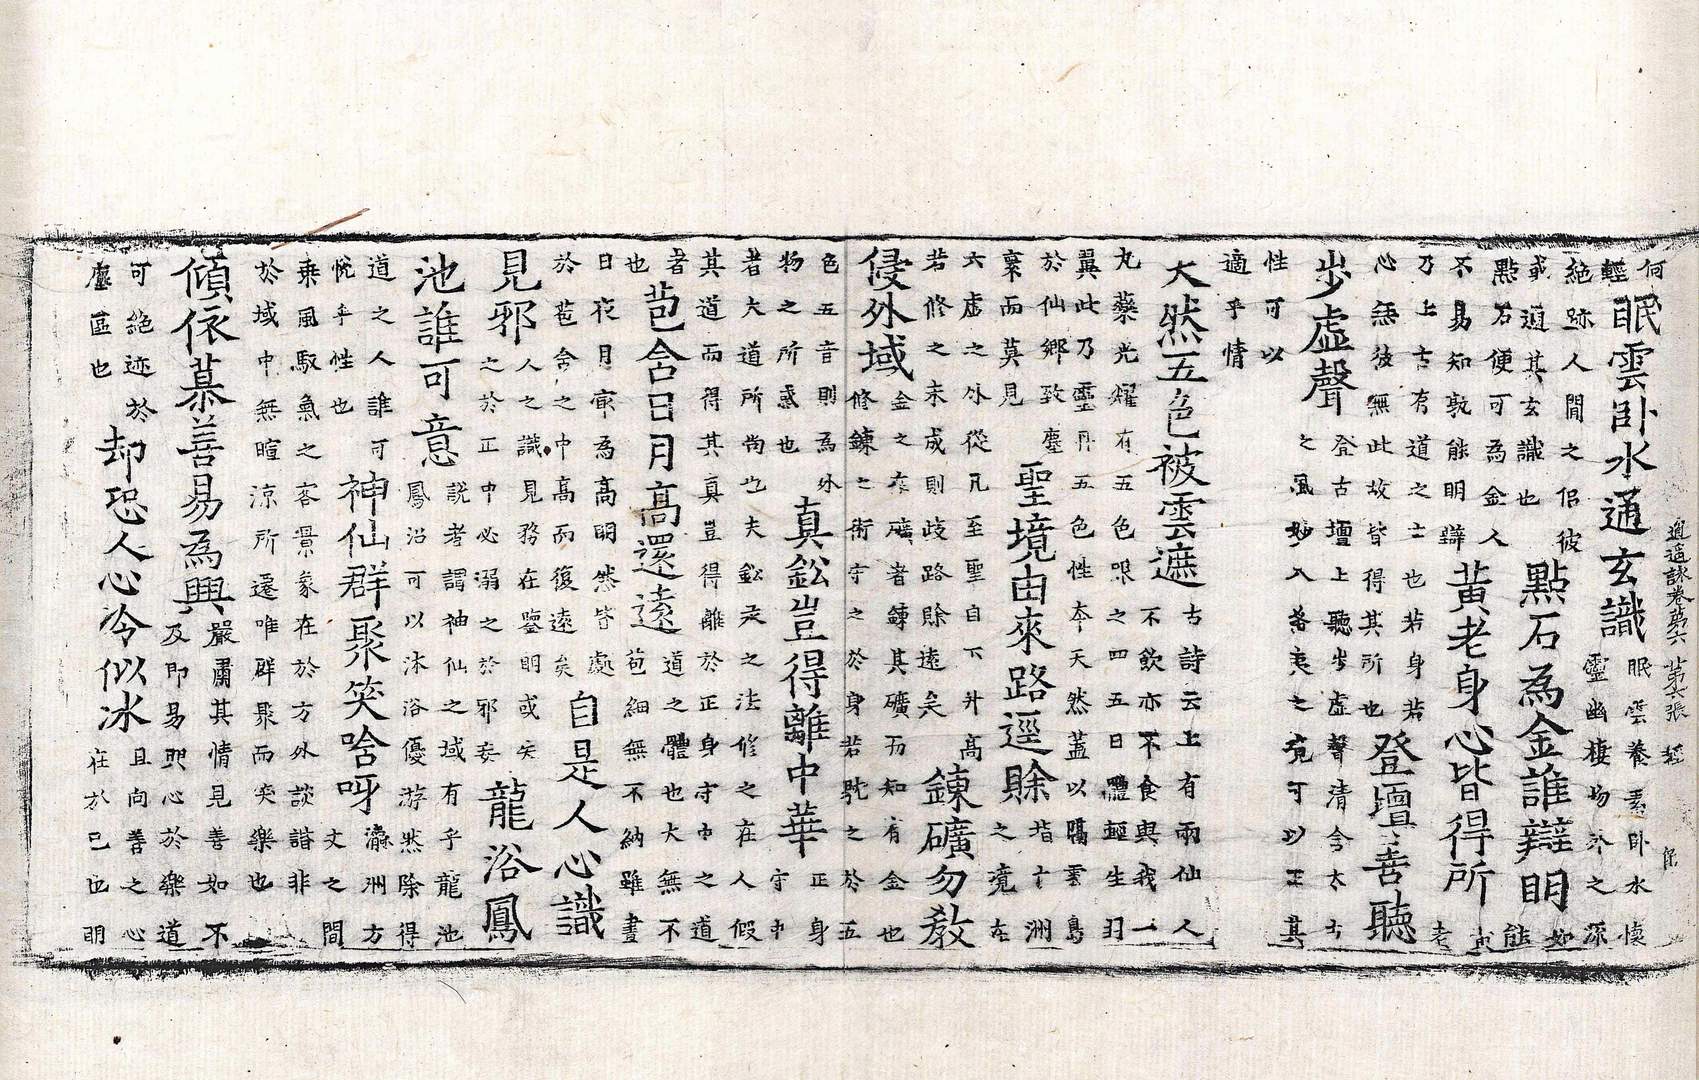 逍遥詠卷第六 第六張 輕
何
輕
眠雲卧水通玄識
眠雲養素卧水懷
靈幽棲物外之深
絶跡人間之侶彼
或通其玄識也
點石為金誰辯明
如
能
點石便可為金人
不易知孰能明辯
黄老身心皆得所
老
乃上古有道之士也若身若
心無彼無此故皆得其所也
登壇善聽
步虚聲
登古壇上聽步虚聲清今太古
之風妙入希夷之境可以正其
性可以
適乎情
大然五色被雲遮
古詩云上有兩仙人
不飲亦不食與我一
丸藥光耀有五色服之四五日體輕生羽
翼此乃靈丹五色性夲天然蓋以隔雲島
於仙郷致塵
棄而莫見
聖境由來路逕賖
指十洲
之境在
六虚之外從凡至聖自下升高
若修之未成則歧路賖遠矣
鍊礦勿教
侵外域
金之在礦者鍊其礦乃知有金也
修鍊之術守之於身若躭之於五
色五音則為外
物之所惑也
真鈆豈得離中華
正身
守中
者大道所尚也夫鈆汞之法修之在人假
其道而得其真豈得離於正身守中之道
者
也
苞含日月高還遠
道之體也大無不
苞細無不納雖晝
日夜月為高明然皆處
於苞含之中高而復遠矣
自是人心識
見邪
人之識見務在鑒明或矣
之於正中必溺之於邪妄
龍浴鳳
池誰可意
説者謂神仙之域有乎龍池
鳳沼可以沐浴優游然除得
道之人誰可
悦乎性也
神仙群聚笑唅呀
瀛洲方
丈之間
乗風馭氣之客景象在於方外談諧非
於域中無暄涼所遷唯群聚而矣樂也
傾依慕善易為興
嚴肅其情見善如不
及即易興心於樂道
可絶迹於
塵區也
却恐人心冷似冰
且向善之心
在於已也明